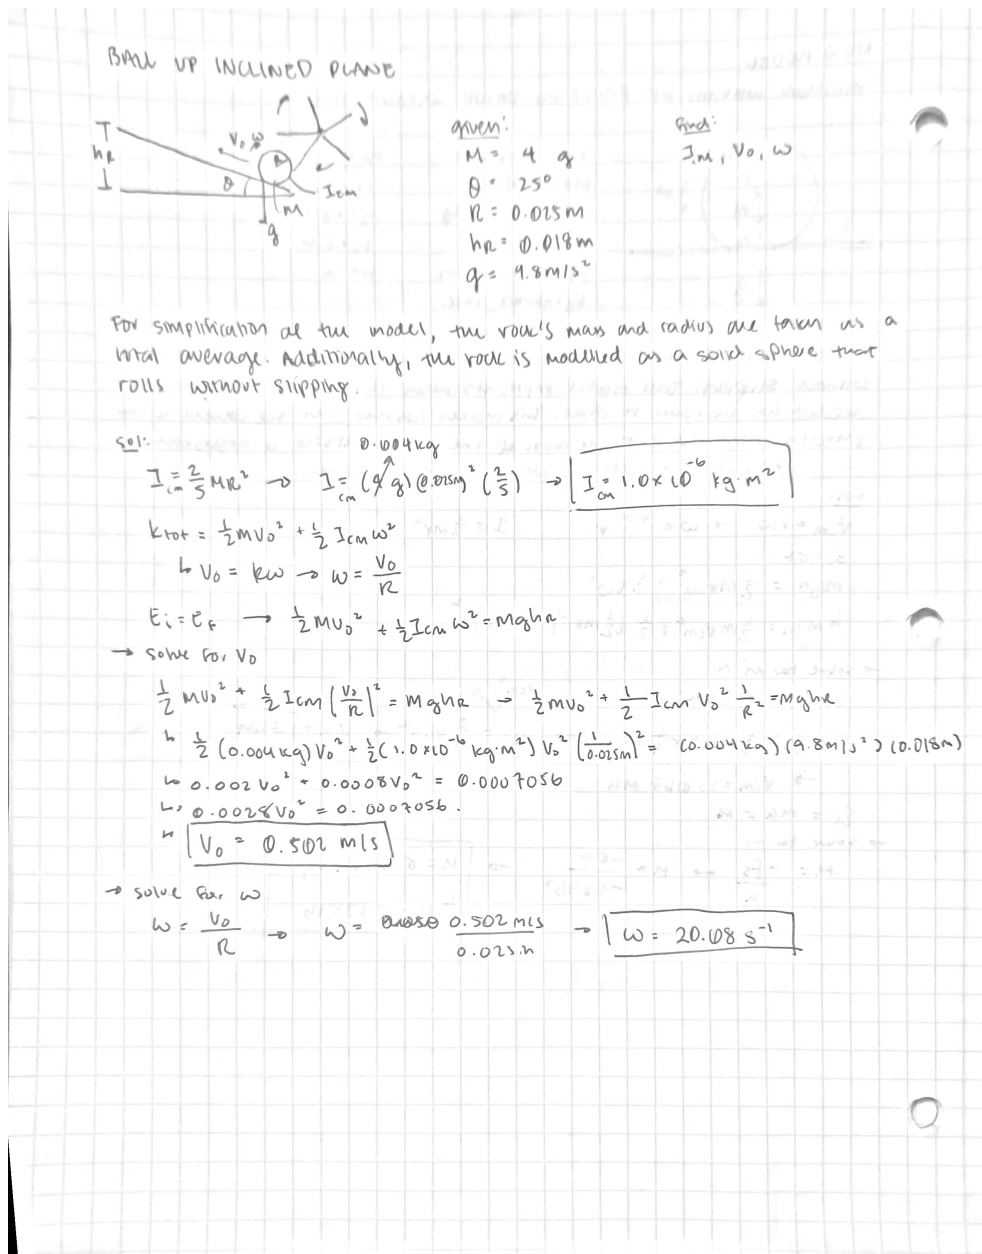 BALL UP INCLINED PLANE
given:
find:
M = 4 g
I_cm, V₀, ω
θ = 25°
R = 0.025m
h_R = 0.018m
g = 9.8m/s²
h_R
V₀ ω
R
θ
I_cm
M
g
For simplification of the model, the rock's mass and radius are taken as a
total average. Additionally, the rock is modelled as a solid sphere that
rolls without slipping.
sol:
0.004kg
I_cm = 2/5 MR² → I_cm = (4 g)(0.025m)² (2/5) → I_cm = 1.0 x 10⁻⁶ kg·m²
K_tot = ½MV₀² + ½ I_cm ω²
↳ V₀ = Rω → ω = V₀/R
E_i = E_f → ½MV₀² + ½I_cm ω² = Mgh_R
→ solve for V₀
½ MV₀² + ½ I_cm (V₀/R)² = Mgh_R → ½MV₀² + ½ I_cm V₀² 1/R² = Mgh_R
↳ ½ (0.004kg) V₀² + ½(1.0x10⁻⁶ kg·m²) V₀² (1/0.025m)² = (0.004kg)(9.8m/s²)(0.018m)
↳ 0.002 V₀² + 0.0008V₀² = 0.0007056
↳ 0.0028V₀² = 0.0007056.
↳ V₀ = 0.502 m/s
→ solve for ω
ω = V₀/R → ω = 0.502 m/s / 0.025m → ω = 20.08 s⁻¹